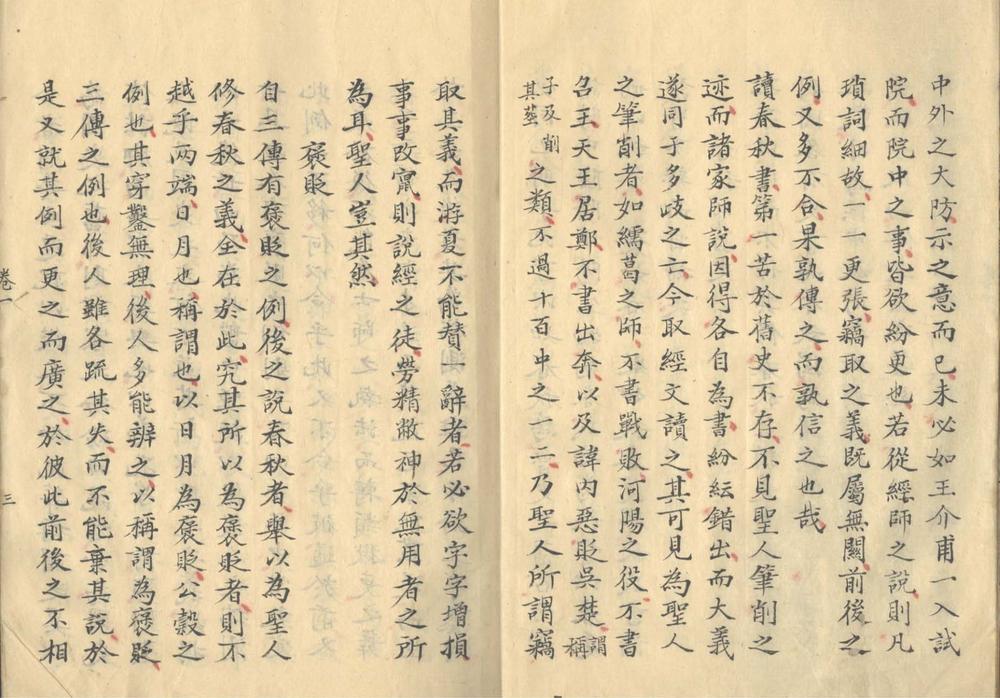 中外之大防示之意而已未必如王介甫一入試
院而院中之事皆欲紛更也若從經師之說則凡
瑣詞細故一一更張竊取之義既屬無關前後之
例又多不合果孰傳之而孰信之也哉
讀春秋書第一苦於舊史不存不見聖人筆削之
迹而諸家師說因得各自為書紛紜錯出而大義
遂同于多歧之亡今取經文讀之其可見為聖人
之筆削者如繻葛之師不書戰敗河陽之役不書
召王天王居鄭不書出奔以及諱內惡貶吳楚謂稱
子及削其葬之類不過十百中之一二乃聖人所謂竊
取其義而游夏不能贊辭者若必欲字字增損
事事改竄則說經之徒勞精敝神於無用者之所
為耳聖人豈其然
褒貶
自三傳有褒貶之例後之說春秋者舉以為聖人
修春秋之義全在於此究其所以為褒貶者則不
越乎兩端日月也稱謂也以日月為褒貶公穀之
例也其穿鑿無理後人多能辨之以稱謂為褒貶
三傳之例也後人雖各疏其失而不能棄其說於
是又就其例而更之而廣之於彼此前後之不相
卷一
三